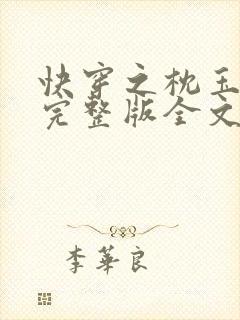 快穿之枕玉
完整版全文
李華良